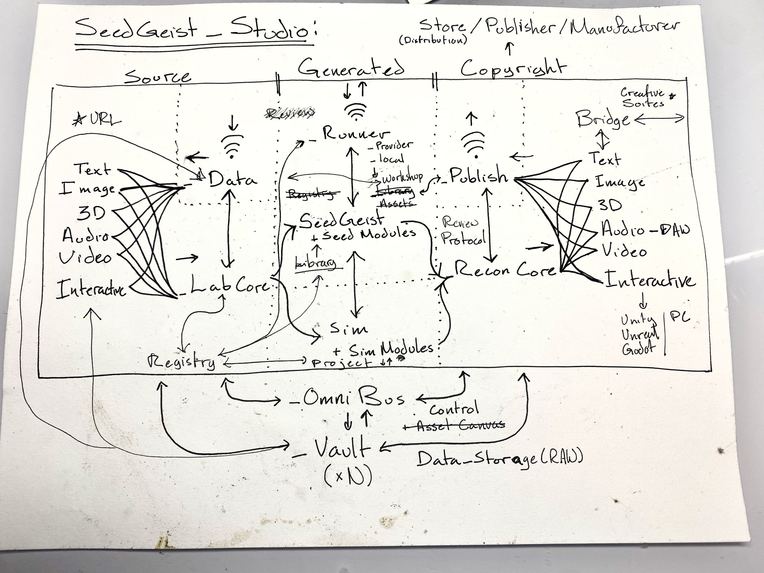 SeedGeist_Studio:
Store/Publisher/Manufacturer
(Distribution)
Source
Generated
Copyright
* URL
Text
Image
3D
Audio
Video
Interactive
Data
LabCore
Registry
Review
- Runner
- Provider
- local
Workshop
Registry
Library
Assets
SeedGeist
+ Seed Modules
Library
Sim
+ Sim Modules
Project
- Publish
Review
Protocol
Recon Core
Creative
Suites
Bridge
Text
Image
3D
Audio - DAW
Video
Interactive
Unity
Unreal
Godot
PC
- Omni Bus
Control
+ Asset Canvas
- Vault
(xN)
Data_Storage(RAW)